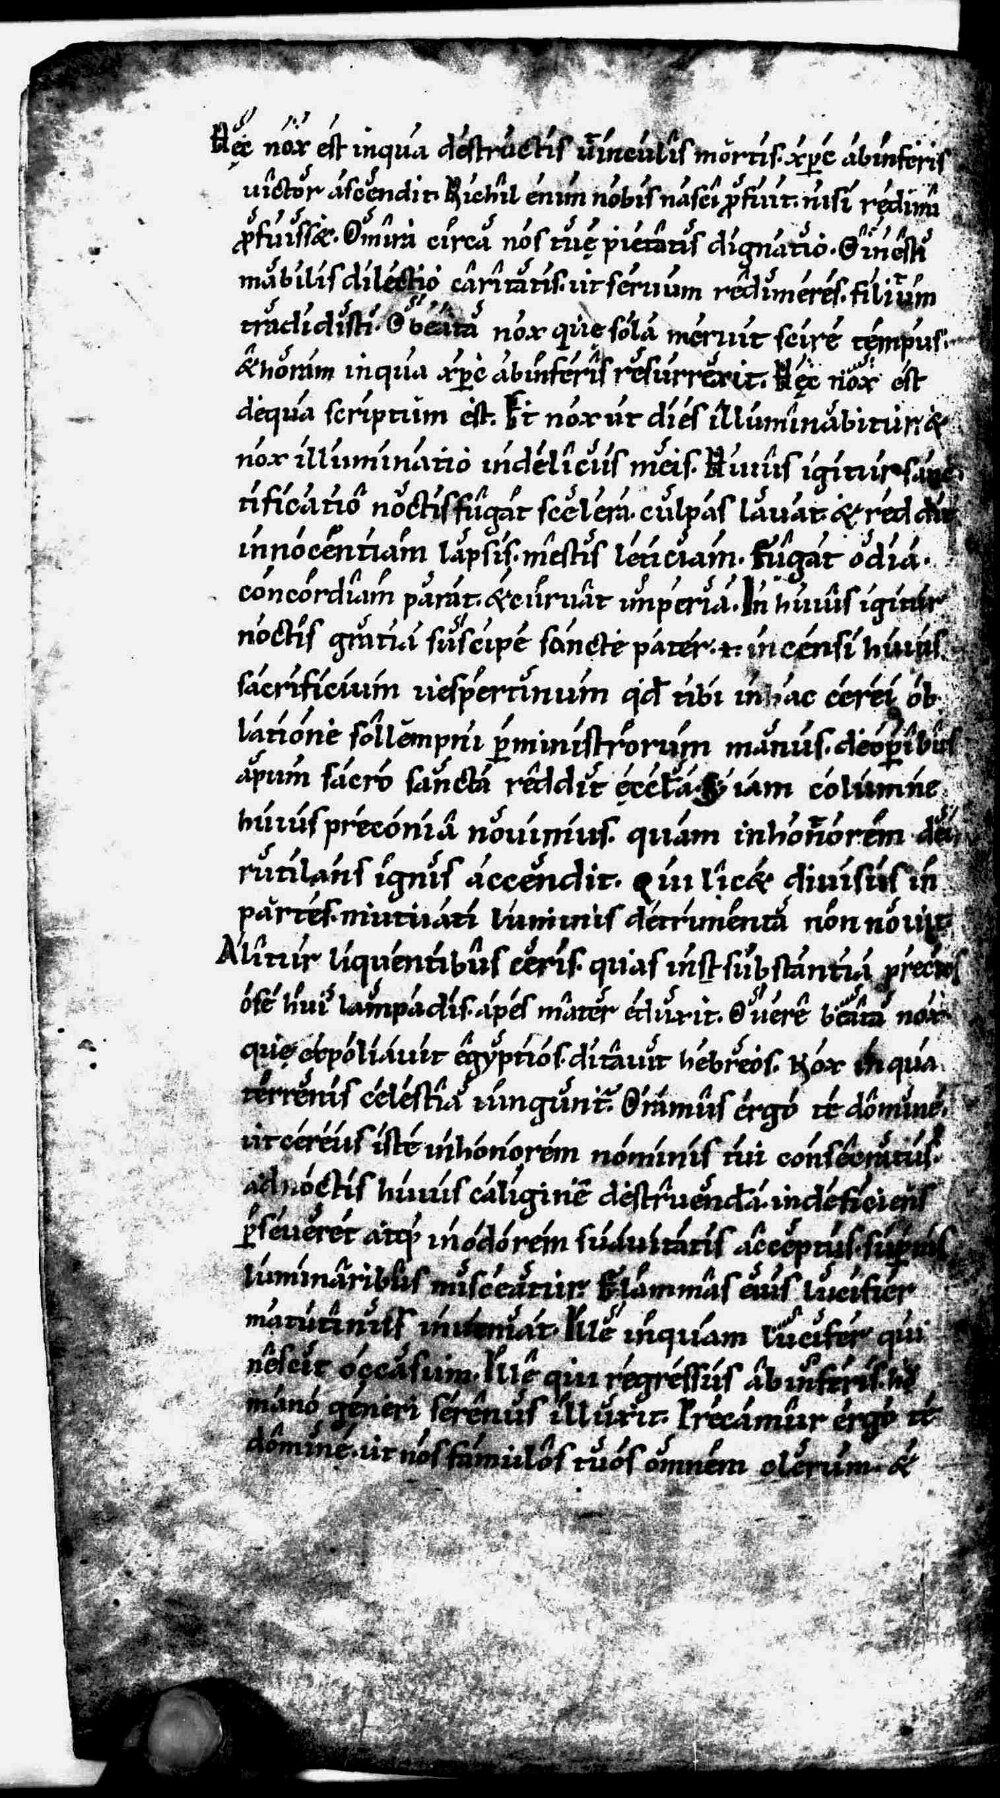 Hęc nox est inqua destructis uinculis mortis. xp̄c abinferis
uictor ascendit. Nichil enim nobis nasci ꝓfuit. nisi redimi
ꝓfuiss&. O mira circa nos tuę pietatis dignatio. O inesti
mabilis dilectio caritatis. ut seruum redimeres. filium
tradidisti. O beata nox que sola meruit scire tempus.
& horam inqua xp̄c abinferis resurrexit. Hęc nox est
dequa scriptum est. Et nox ut dies illuminabitur. &
nox illuminatio indeliciis meis. Huius igitur sanc
tificatio noctis fugat scelera. culpas lauat. & reddit
innocentiam lapsis. mestis leticiam. Fugat odia.
concordiam parat. & curuat imperia. In huius igitur
noctis gratia suscipe sancte pater. incensi huius
sacrificium uespertinum qd̄ tibi inhac cerei ob
latione sollempni ꝑministrorum manus. deoꝑibus
apum sacro sancta reddit ęcclā. Sꝫ iam columne
huius preconia nouimus. quam inhonorem dei
rutilans ignis accendit. Qui lic& diuisus in
partes. mutuati luminis detrimenta non nouit.
Alitur liquentibus ceris. quas inst substantia preci
ose hui lampadis. apes mater eduxit. O uere beata nox
quę expoliauit egyptios. ditauit hebreos. Nox inqua
terrenis celestia iungunt̄. Oramus ergo te domine.
ut cereus iste inhonorem nominis tui consecratus.
adnoctis huius caliginē destruendā. indeficiens
ꝑseueret atqꝫ inodorem suauitatis acceptus. suꝑnis
luminaribus misceatur. Flammas eius lucifer
matutinus inueniat. Ille inquam lucifer qui
nescit occasum. Ille qui regressus abinferis. hu
mano generi serenus illuxit. Precamur ergo te
domine. ut nos famulos tuos omnem clerum. &